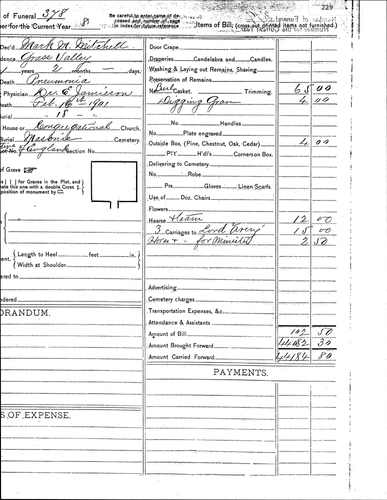 229
of Funeral 378
er for the Current Year 8
Be careful to enter name of de-
ceased and number of page
in index for future reference
Items of Bill; (cross out printed items not furnished.)
Dec'd Mark M. Mitchell
ence Grass Valley
years months days.
Death Pneumonia
Physician Dr. E. Jamieson
eath Feb. 16th 1901
urial " 18 - "
House or Congregational Church.
urial Cemetery.
Lot No. Section No.
of Grave
for Graves in the Plot, and
ate this one with a double Cross
position of monument by
Length to Heel feet in.
Width at Shoulder
ered to
ndered
ORANDUM.
S OF EXPENSE.
Door Crape
Draperies Candelabra and Candles.
Washing & Laying out Remains, Shaving
Preservation of Remains
No. Casket, Trimming. 65 00
Digging Grave 4 00
No. Handles
Plate engraved
Outside Box, (Pine, Chestnut, Oak, Cedar) 4 00
P'lY H'dl's Corners on Box.
Delivering to Cemetery
No. Robe
Prs. Gloves Linen Scarfs.
Use of Doz. Chairs
Flowers
Hearse 12 00
3 Carriages to 15 00
for Minister 2 50
Advertising
Cemetery charges
Transportation Expenses, &c.
Attendance & Assistants
Amount of Bill 102 50
Amount Brought Forward 44082 30
Amount Carried Forward 44184 80
PAYMENTS.